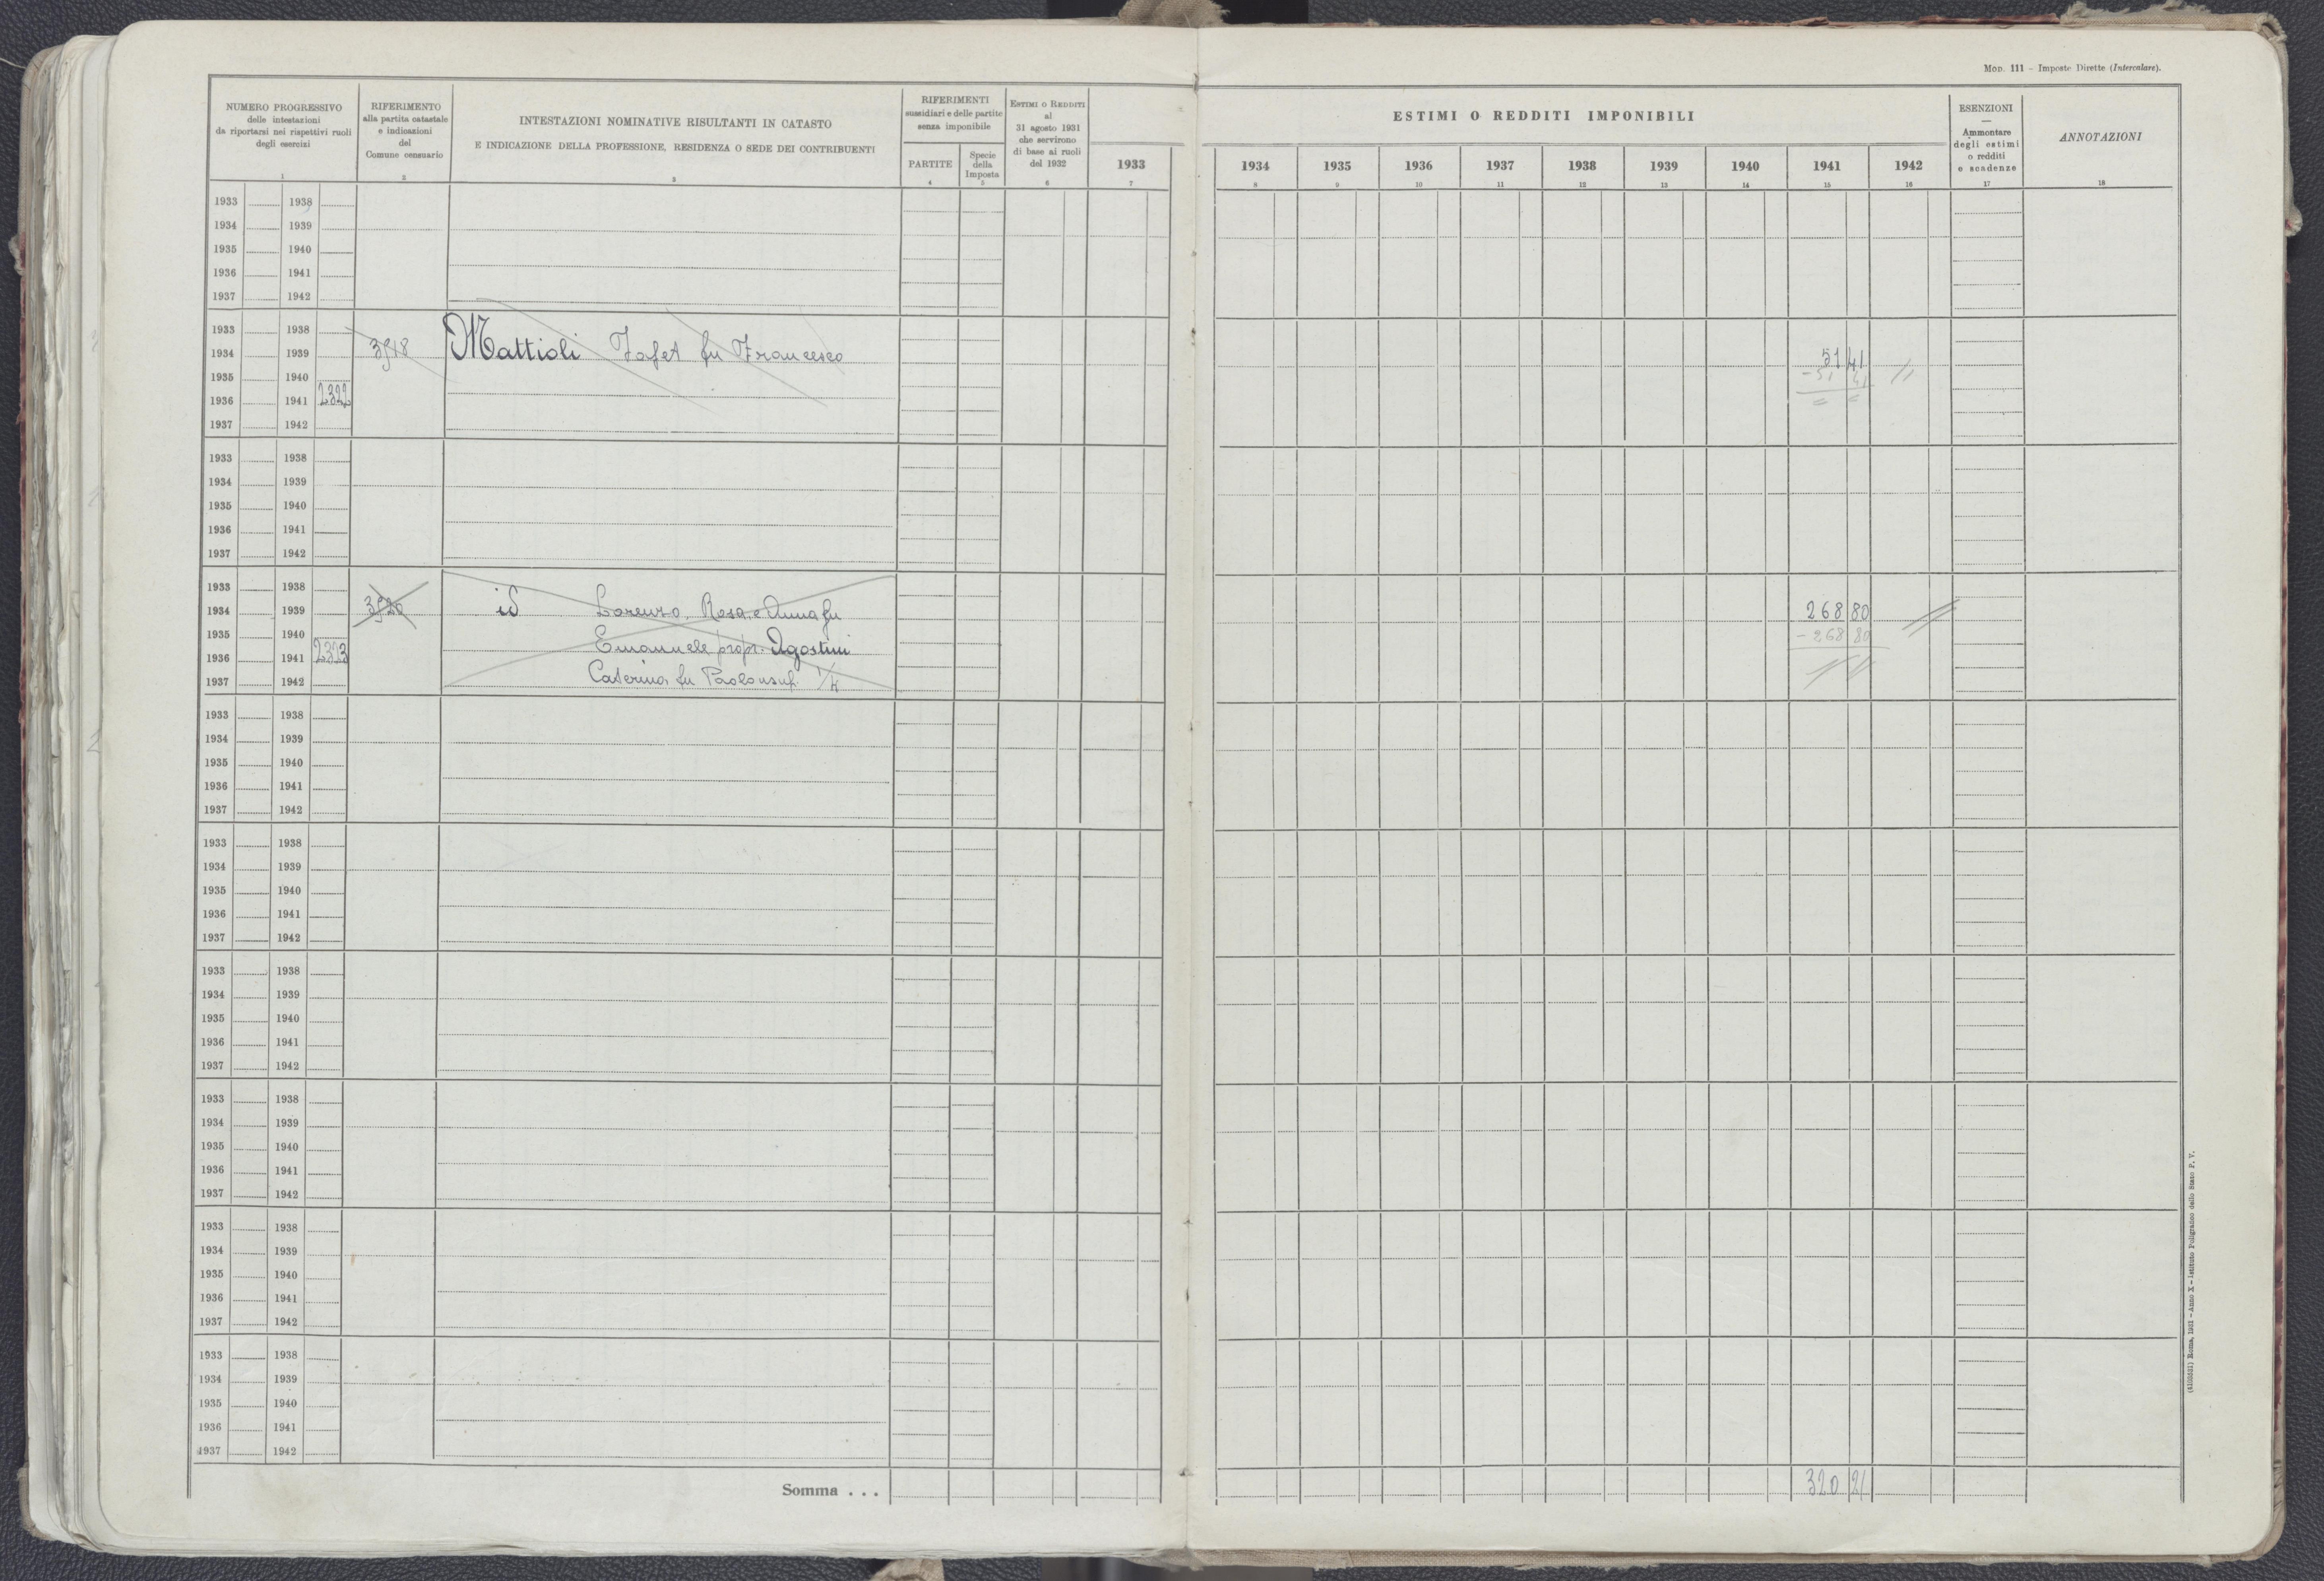 Mod. 111 – Imposte Dirette (Intercalare).
NUMERO PROGRESSIVO
delle intestazioni
da riportarsi nei rispettivi ruoli
degli esercizi
1
RIFERIMENTO
alla partita catastale
e indicazioni
del
Comune censuario
2
INTESTAZIONI NOMINATIVE RISULTANTI IN CATASTO
E INDICAZIONE DELLA PROFESSIONE, RESIDENZA O SEDE DEI CONTRIBUENTI
3
RIFERIMENTI
sussidiari e delle partite
senza imponibile
PARTITE
4
Specie
della
Imposta
5
Estimi o Redditi
al
31 agosto 1931
che servirono
di base ai ruoli
del 1932
6
1933
7
ESTIMI O REDDITI IMPONIBILI
1934 1935 1936 1937 1938 1939 1940 1941 1942
8 9 10 11 12 13 14 15 16
ESENZIONI
—
Ammontare
degli estimi
o redditi
e scadenze
17
ANNOTAZIONI
18
1933 1938
1934 1939
1935 1940
1936 1941
1937 1942
1933 1938
1934 1939 3918 Mattioli Jafet fu Francesco 51 41
1935 1940 - 51 41
1936 1941 2322 = =
1937 1942
1933 1938
1934 1939
1935 1940
1936 1941
1937 1942
1933 1938
1934 1939 3920 id Lorenzo, Rosa, e Anna fu 268 80
1935 1940 Emanuele propr. Agostini - 268 80
1936 1941 2323
1937 1942 Caterina fu Paolo usuf. 1/4
1933 1938
1934 1939
1935 1940
1936 1941
1937 1942
1933 1938
1934 1939
1935 1940
1936 1941
1937 1942
1933 1938
1934 1939
1935 1940
1936 1941
1937 1942
1933 1938
1934 1939
1935 1940
1936 1941
1937 1942
1933 1938
1934 1939
1935 1940
1936 1941
1937 1942
1933 1938
1934 1939
1935 1940
1936 1941
1937 1942
Somma . . . 320 21
(4103331) Roma, 1931 – Anno X – Istituto Poligrafico dello Stato P. V.